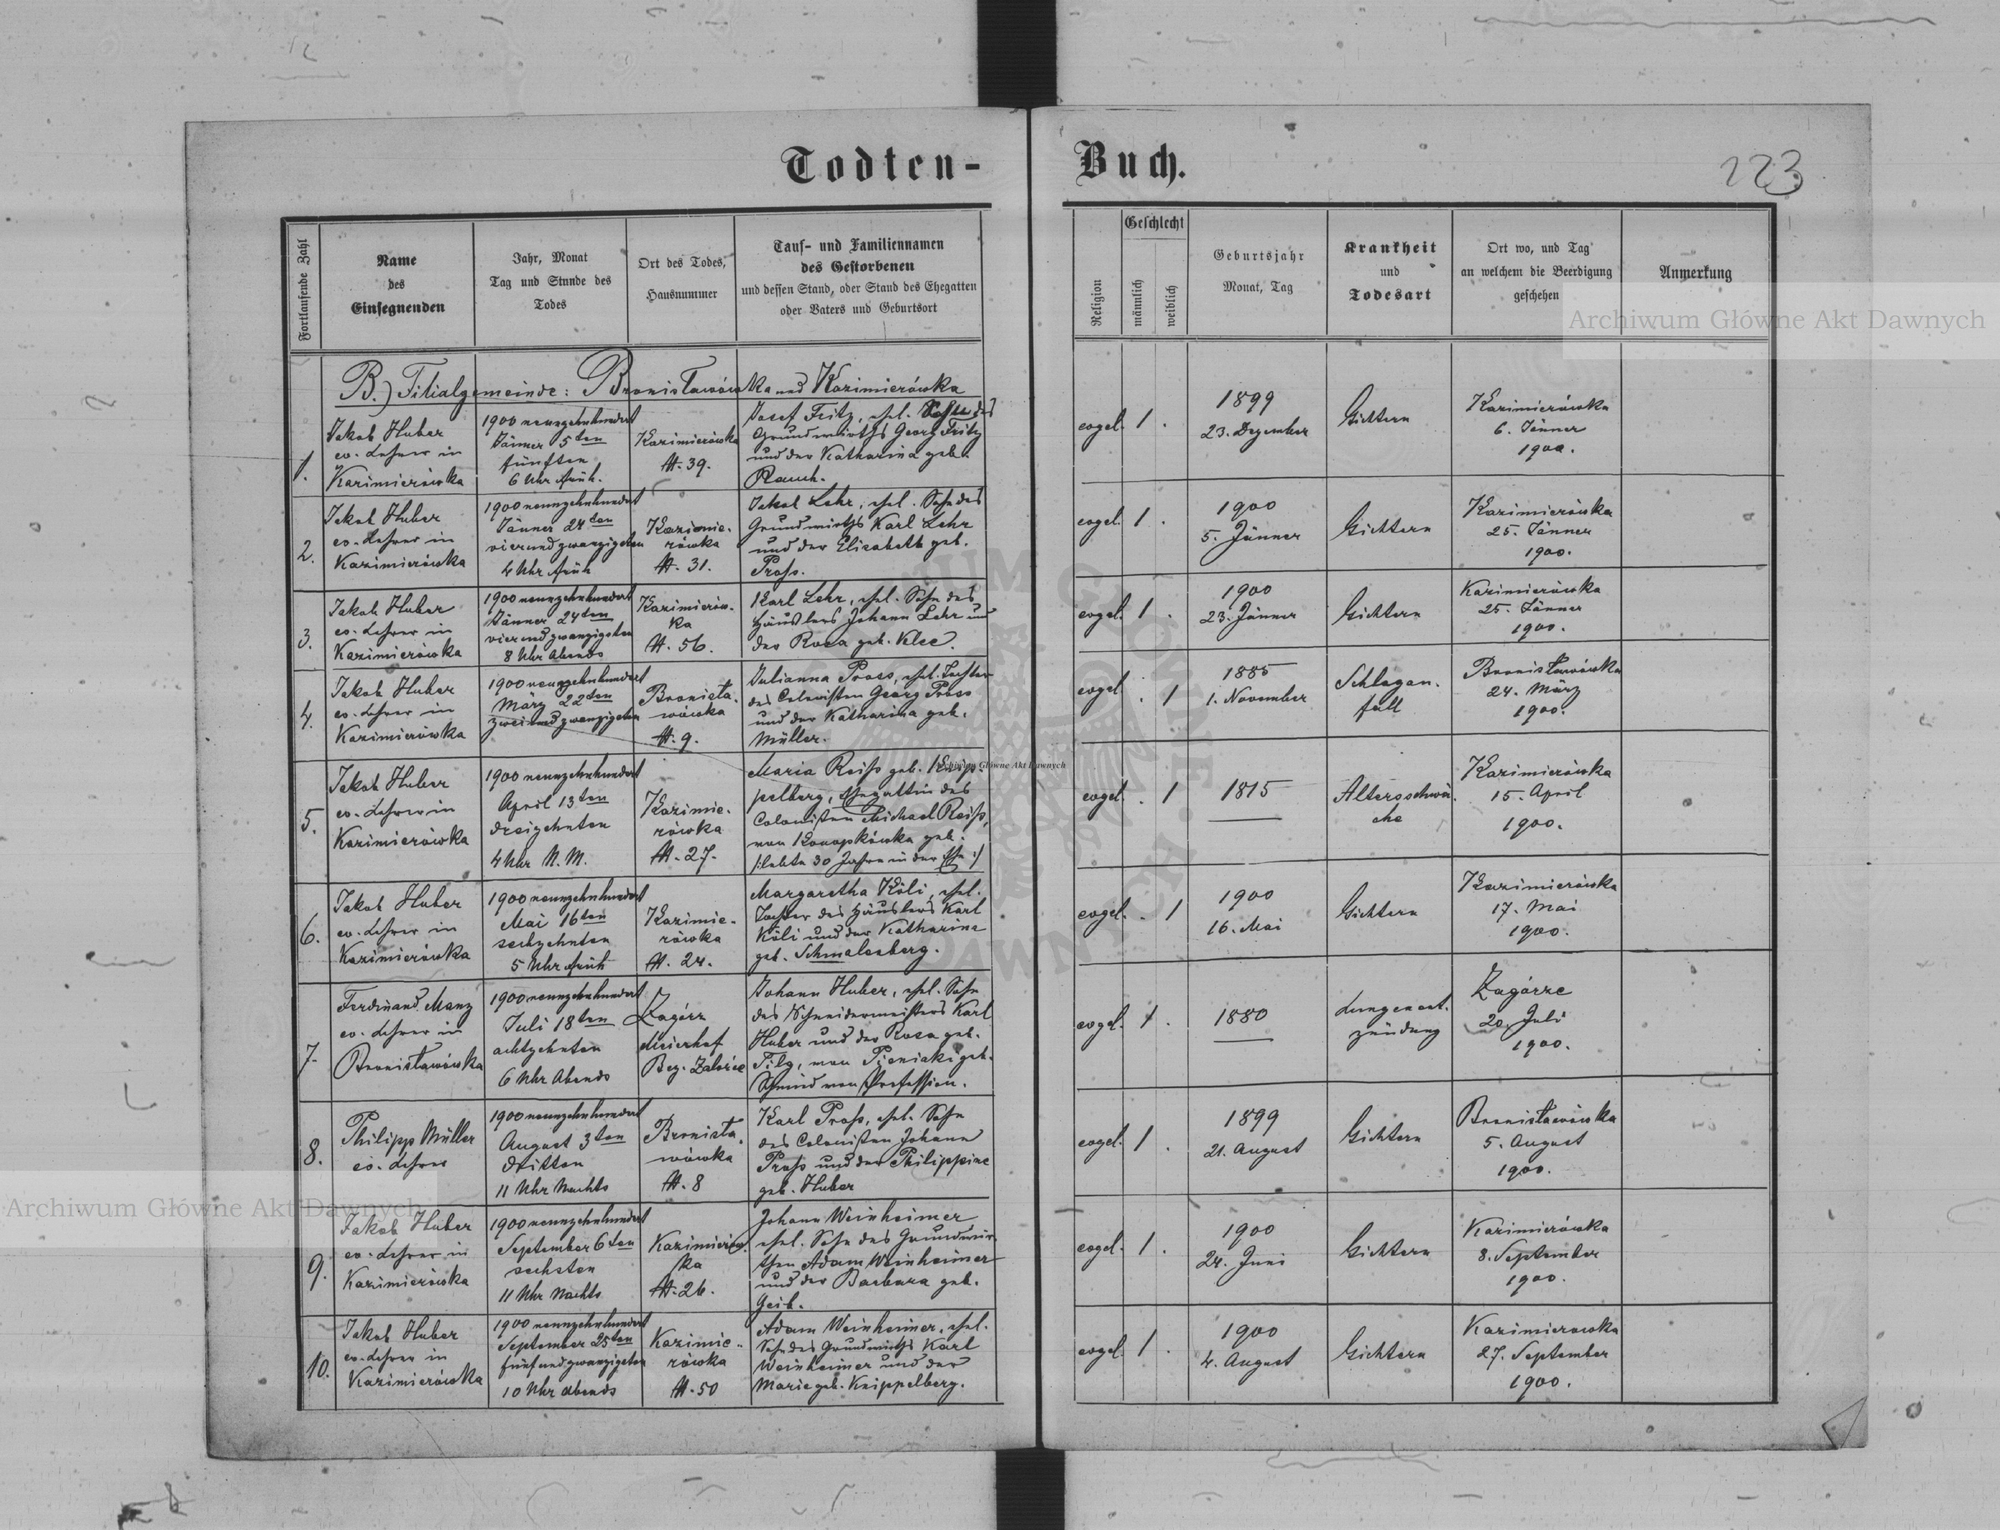 Todten-
Buch.
223
Fortlaufende Zahl
Name
des
Einsegnenden
Jahr, Monat
Tag und Stunde des
Todes
Ort des Todes,
Hausnummer
Tauf- und Familiennamen
des Gestorbenen
und dessen Stand, oder Stand des Ehegatten
oder Vaters und Geburtsort
Religion
Geschlecht
männlich
weiblich
Geburtsjahr
Monat, Tag
Krankheit
und
Todesart
Ort wo, und Tag
an welchem die Beerdigung
geschehen
Anmerkung
B.) Filialgemeinde: Bronisławówka und Kazimierówka
1.
Jakob Huber
ev. Lehrer in
Kazimierówka
1900 neunzehnhundert
Jänner 5ten
fünften
6 Uhr früh.
Kazimierówka
N. 39.
Josef Fritz, ehel. Sohn des
Grundwirths Georg Fritz
und der Katharina geb.
Rauch.
evgel.
1
.
1899
23. Dezember
Gichtern
Kazimierówka
6. Jänner
1900.
2.
Jakob Huber
ev. Lehrer in
Kazimierówka
1900 neunzehnhundert
Jänner 24ten
vierundzwanzigsten
4 Uhr früh
Kazimie-
rówka
N. 31.
Jakob Lehr, ehel. Sohn des
Grundwirths Karl Lehr
und der Elisabeth geb.
Pross.
evgel.
1
.
1900
5. Jänner
Gichtern
Kazimierówka
25. Jänner
1900.
3.
Jakob Huber
ev. Lehrer in
Kazimierówka
1900 neunzehnhundert
Jänner 24ten
vierundzwanzigsten
8 Uhr Abends
Kazimierów-
ka
N. 56.
Karl Lehr, ehel. Sohn des
Häuslers Johann Lehr und
der Rosa geb. Klee.
evgel.
1
.
1900
23. Jänner
Gichtern
Kazimierówka
25. Jänner
1900.
4.
Jakob Huber
ev. Lehrer in
Kazimierówka
1900 neunzehnhundert
März 22ten
zweiundzwanzigsten
Bronisła-
wówka
N. 9.
Julianna Pross, ehel. Tochter
des Colonisten Georg Pross
und der Katharina geb.
Müller.
evgel
.
1
1885
1. November
Schlagan-
fall
Bronisławówka
24. März
1900.
5.
Jakob Huber
ev. Lehrer in
Kazimierówka
1900 neunzehnhundert
April 13ten
dreizehnten
4 Uhr N. M.
Kazimie-
rówka
N. 27.
Maria Reiss geb. Knip-
pelberg, Ehegattin des
Colonisten Michael Reiss,
von Konopkówka geb.
/:lebte 30 Jahre in der Ehe:/
evgel.
.
1
1815
Altersschwä-
che
Kazimierówka
15. April
1900.
6.
Jakob Huber
ev. Lehrer in
Kazimierówka
1900 neunzehnhundert
Mai 16ten
sechzehnten
5 Uhr früh
Kazimie-
rówka
N. 24.
Margaretha Köli, ehel.
Tochter des Häuslers Karl
Köli und der Katharina
geb. Schmalenberg.
evgel.
.
1
1900
16. Mai
Gichtern
Kazimierówka
17. Mai
1900.
7.
Ferdinand Manz
ev. Lehrer in
Bronisławówka
1900 neunzehnhundert
Juli 18ten
achtzehnten
6 Uhr Abends
Zagórz
Meierhof
Bez. Załoźce
Johann Huber, ehel. Sohn
des Schneidermeisters Karl
Huber und der Rosa geb.
Filz, von Pieniaki geb.
Schmied von Profession.
evgel.
1
.
1880
Lungenent-
zündung
Zagórze
20. Juli
1900.
8.
Philipp Müller
ev. Lehrer
1900 neunzehnhundert
August 3ten
dritten
11 Uhr Nachts
Bronisła-
wówka
N. 8
Karl Pross, ehel. Sohn
des Colonisten Johann
Pross und der Philippine
geb. Huber
evgel.
1
.
1899
21. August
Gichtern
Bronisławówka
5. August
1900.
9.
Jakob Huber
ev. Lehrer in
Kazimierówka
1900 neunzehnhundert
September 6ten
sechsten
11 Uhr Nachts
Kazimierów-
ka
N. 26.
Johann Weinheimer
ehel. Sohn des Grundwir-
then Adam Weinheimer
und der Barbara geb.
Geib.
evgel.
1
.
1900
24. Juni
Gichtern
Kazimierówka
8. September
1900.
10.
Jakob Huber
ev. Lehrer in
Kazimierówka
1900 neunzehnhundert
September 25ten
fünfundzwanzigsten
10 Uhr abends
Kazimie-
rówka
N. 50
Adam Weinheimer, ehel.
Sohn des Grundwirths Karl
Weinheimer und der
Marie geb. Knippelberg.
evgel.
1
.
1900
4. August
Gichtern
Kazimierowka
27. September
1900.
Archiwum Główne Akt Dawnych
Archiwum Główne Akt Dawnych
Archiwum Główne Akt Dawnych